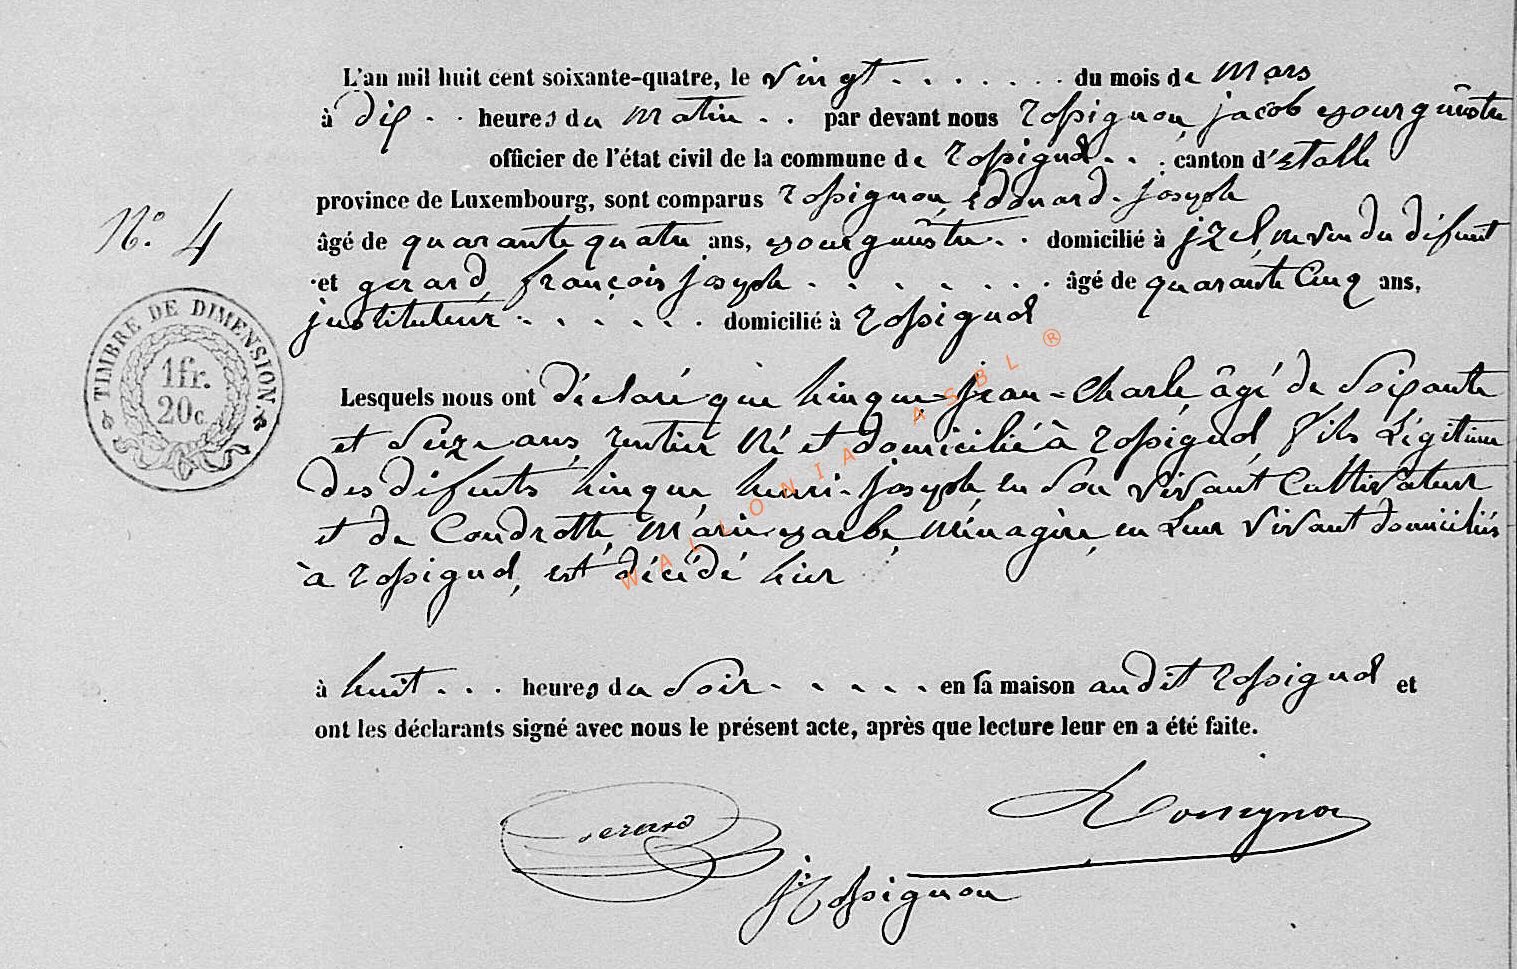 L'an mil huit cent soixante-quatre, le vingt . . . . . . . du mois de Mars
à dix . . heures du Matin . . par devant nous Rossignon, jacob Bourguemestre
officier de l'état civil de la commune de Rossignol . . . canton d'Etalle
province de Luxembourg, sont comparus Rossignon, Edouard-joseph
N.° 4
âgé de quarante quatre ans, Bourguemestre . . domicilié à jzel, neveu du défunt
et gerard, françois joseph . . . . . . . . âgé de quarante Cinq ans,
instituteur . . . . . . domicilié à Rossignol
TIMBRE DE DIMENSION
1fr.
20c
Lesquels nous ont déclaré que hinque jean-Charle, âgé de Soixante
et Seize ans, rentier Né et domicilié à Rossignol, Fils Légitime
des défunts hinque henri-joseph, en Son Vivant Cultivateur
et de Condrotte, Marie Barbe, Ménagère, en Leur Vivant domiciliés
à Rossignol, est décédé hier
à huit . . . heures du Soir . . . . . en la maison audit Rossignol et
ont les déclarants signé avec nous le présent acte, après que lecture leur en a été faite.
Gerard
Rossignon
J: Rossignon
WALLONIA ASBL ®